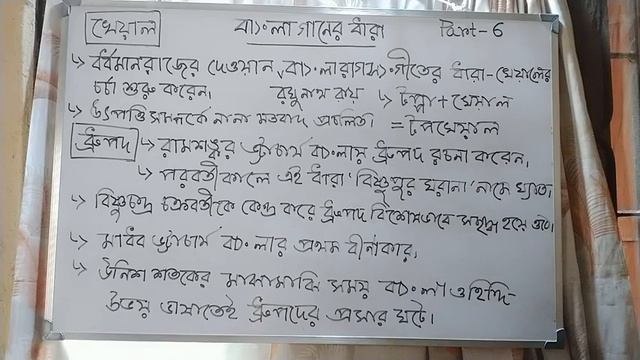 খেয়াল বাংলা গানের ধারা Part-6
↳ বর্ধমানরাজের দেওয়ান, বাংলা রাগসংগীতের ধারা - খেয়ালের
চর্চা শুরু করেন। রঘুনাথ রায় ↳ টপ্পা + খেয়াল
↳ উৎপত্তি সম্পর্কে নানা মতবাদ প্রচলিত। = টপখেয়াল
ধ্রুপদ ↳ রামশঙ্কর ভট্টাচার্য বাংলায় ধ্রুপদ রচনা করেন।
↳ পরবর্তীকালে এই ধারা 'বিষ্ণুপুর ঘরানা' নামে খ্যাত।
↳ বিষ্ণুচন্দ্র চক্রবর্তীকে কেন্দ্র করে ধ্রুপদ বিশেষভাবে সমৃদ্ধ হয়ে ওঠে।
↳ মাধব ভট্টাচার্য বাংলার প্রথম বীনাকার।
↳ উনিশ শতকের মাঝামাঝি সময় বাংলা ও হিন্দি-
উভয় ভাষাতেই ধ্রুপদের প্রসার ঘটে।